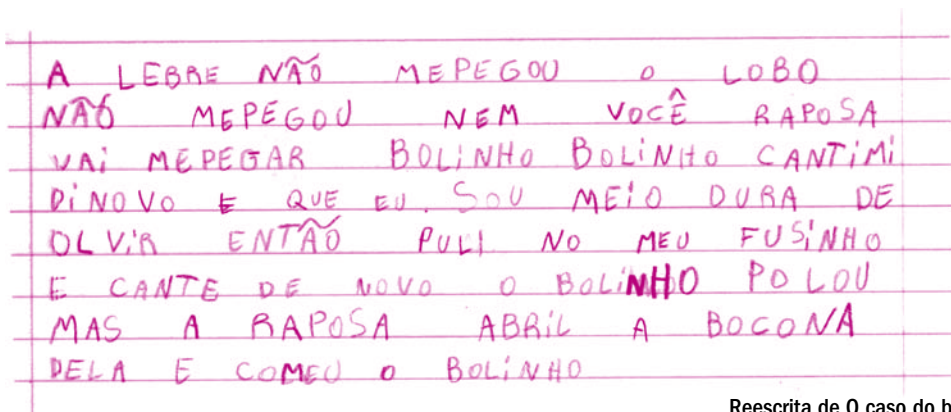 A LEBRE NÃO MEPEGOU O LOBO
NÃO MEPEGOU NEM VOCÊ RAPOSA
VAI MEPEGAR BOLINHO BOLINHO CANTIMI
DINOVO E QUE EU. SOU MEIO DURA DE
OLVIR ENTÃO PULI NO MEU FUSINHO
E CANTE DE NOVO O BOLINHO POLOU
MAS A RAPOSA ABRIL A BOCONA
DELA E COMEU O BOLINHO
Reescrita de O caso do b